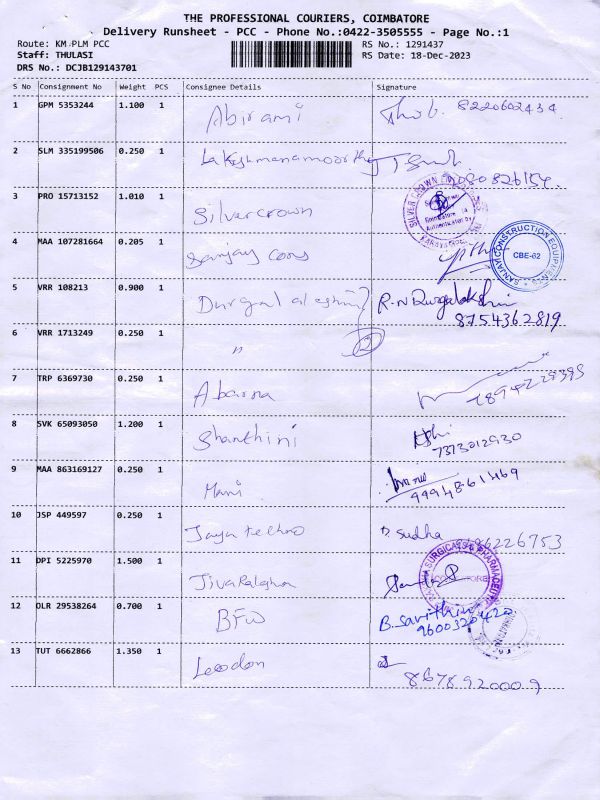 THE PROFESSIONAL COURIERS, COIMBATORE
Delivery Runsheet - PCC - Phone No.:0422-3505555 - Page No.:1
Route: KM PLM PCC
RS No.: 1291437
Staff: THULASI
RS Date: 18-Dec-2023
DRS No.: DCJB129143701
S No Consignment No Weight PCS Consignee Details Signature
1 GPM 5353244 1.100 1 Abirami 8220602434
2 SLM 335199506 0.250 1 Lakshmanamoorthy
3 PRO 15713152 1.010 1 Silvercrown
SILVER CROWN
4 MAA 107281664 0.205 1 Sanjay Cons
SANJAY CONSTRUCTION EQUIPMENTS
CBE-62
5 VRR 108213 0.900 1 R.N Durgalakshmi
8754362819
6 VRR 1713249 0.250 1 " 2
7 TRP 6369730 0.250 1
8 SVK 65093050 1.200 1 Shanthini
7373012930
9 MAA 863169127 0.250 1 Mani
9994861469
10 JSP 449597 0.250 1 Sudha
11 DPI 5225970 1.500 1
SURGICALS & PHARMACEUTICALS
12 OLR 29538264 0.700 1 BFW B. Savithiri
9600320420
13 TUT 6662866 1.350 1
8678920009